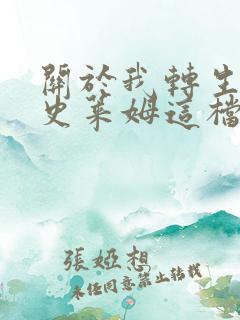 關於我轉生
史萊姆這檔
張婭想
未經同意禁止轉載